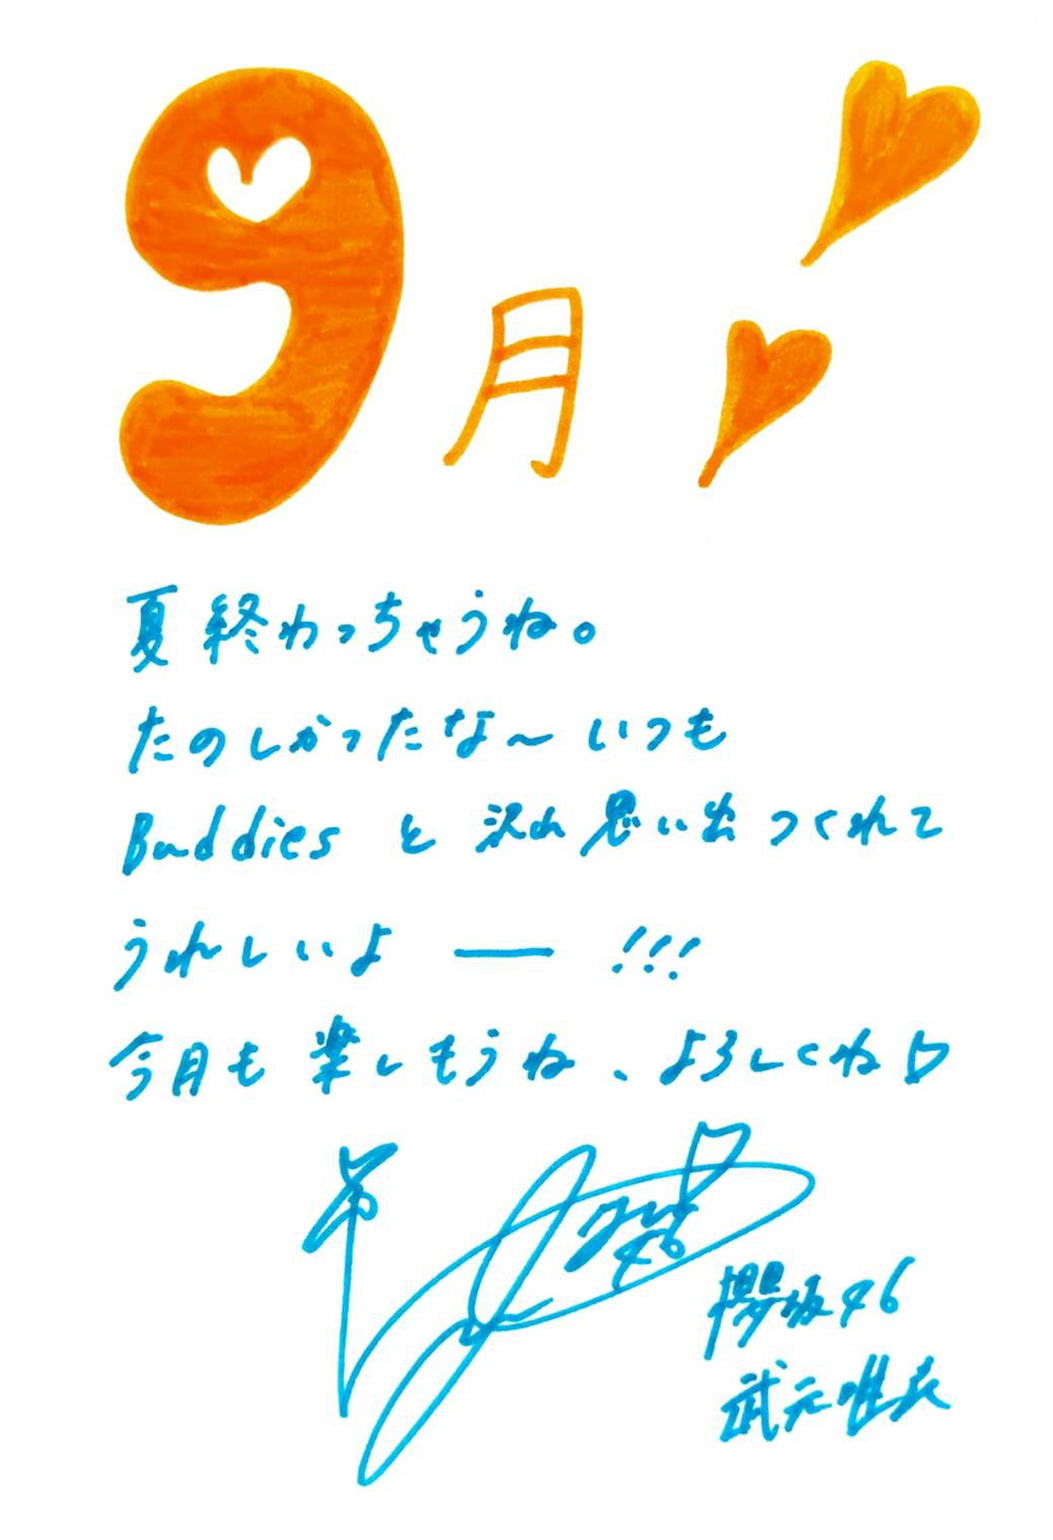 9月
夏終わっちゃうね。
たのしかったな〜いつも
Buddiesと沢山思い出つくれて
うれしいよ ー !!!
今月も楽しもうね、よろしくね♡
櫻坂46
武元唯衣